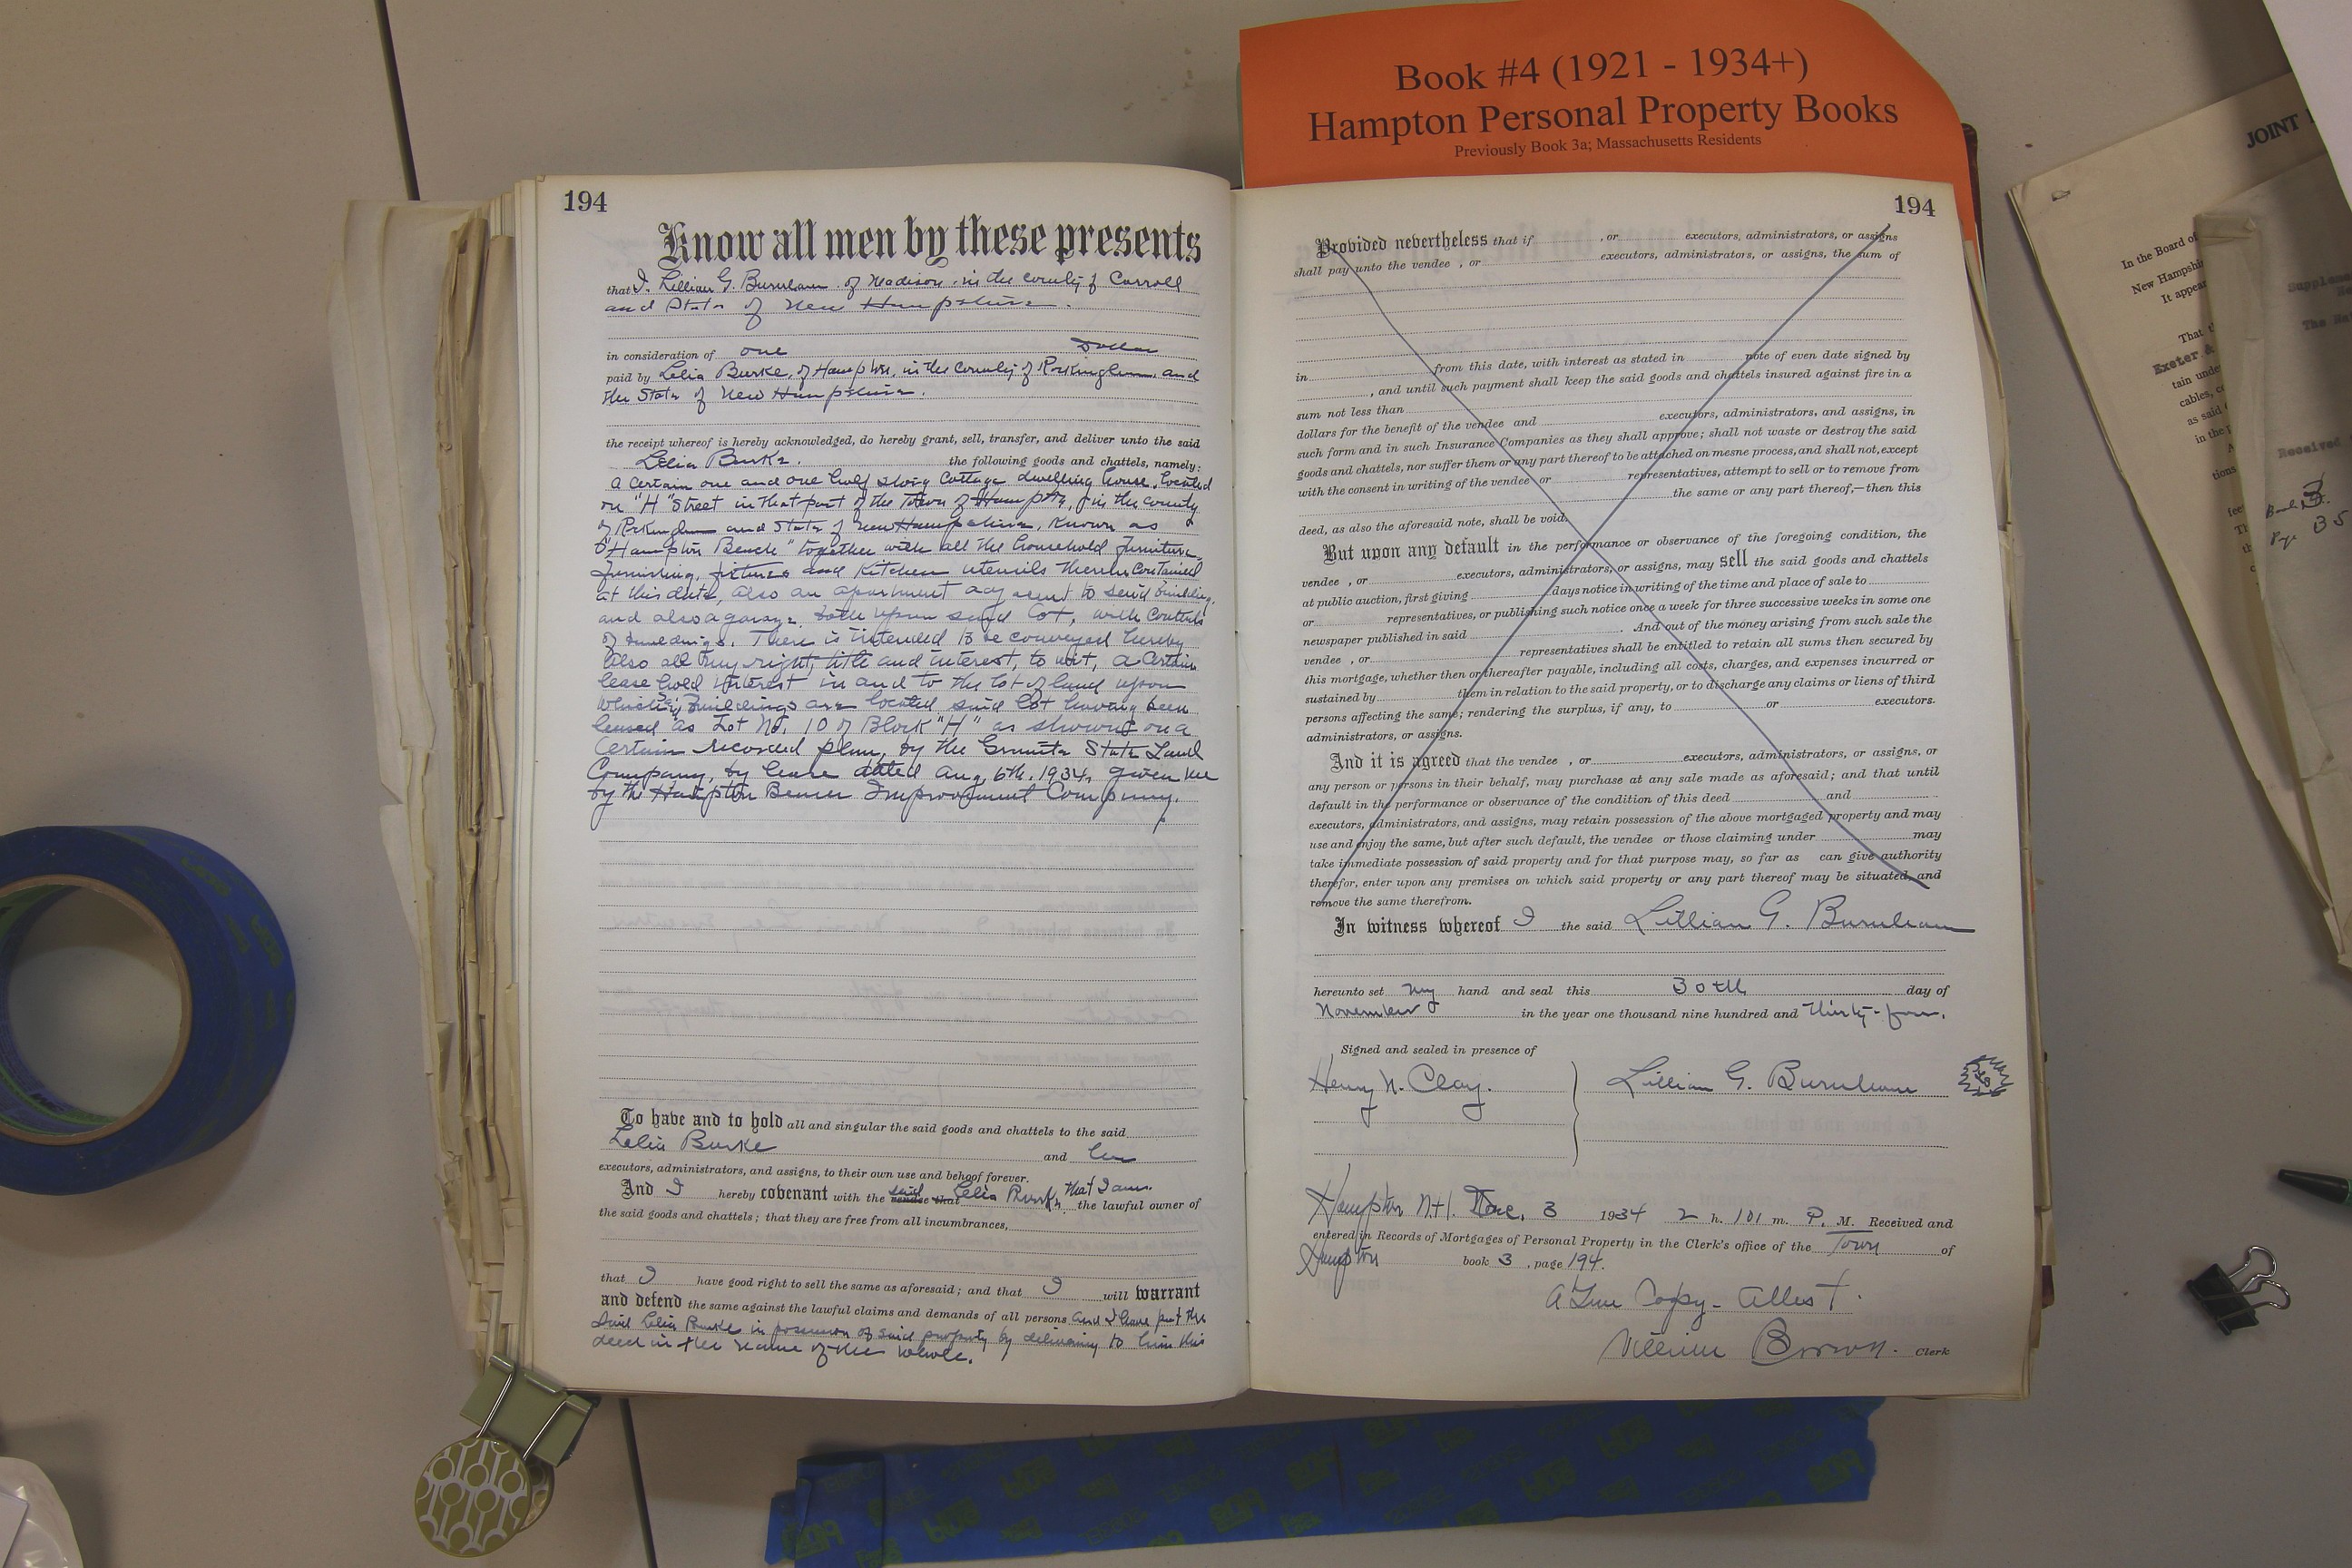 Book #4 (1921 - 1934+)
Hampton Personal Property Books
Previously Book 3a; Massachusetts Residents
194
Know all men by these presents
that I, Lillian G. Burnham of Madison in the county of Carroll
and State of New Hampshire.
in consideration of one Dollar
paid by Lelia Burke, of Hampton, in the County of Rockingham, and
the State of New Hampshire.
the receipt whereof is hereby acknowledged, do hereby grant, sell, transfer, and deliver unto the said
Lelia Burke. the following goods and chattels, namely:
a certain one and one half story Cottage dwelling house, located
on "H" Street in that part of the Town of Hampton, in the county
of Rockingham and State of New Hampshire, known as
"Hampton Beach" together with all the household furniture,
furnishing, fixtures and kitchen utensils therein contained
at this date, also an apartment adjacent to said building,
and also a garage, both upon said lot, with contents
of buildings. There is intended to be conveyed hereby
also all my right, title and interest, to wit, a certain
lease hold interest in and to the lot of land upon
which buildings are located, said lot having been
leased as Lot No. 10 of Block "H" as shown on a
certain recorded plan, by the Granite State Land
Company, by lease dated Aug. 6th. 1934, given me
by the Hampton Beach Improvement Company.
To have and to hold all and singular the said goods and chattels to the said
Lelia Burke and her
executors, administrators, and assigns, to their own use and behoof forever.
And I hereby covenant with the said vendee that Lelia Burke, that I am the lawful owner of
the said goods and chattels; that they are free from all incumbrances,
that I have good right to sell the same as aforesaid; and that I will warrant
and defend the same against the lawful claims and demands of all persons and I have put the
said Lelia Burke in possession of said property by delivering to him this
deed in the name of the whole.
194
Provided nevertheless that if , or executors, administrators, or assigns
shall pay unto the vendee , or executors, administrators, or assigns, the sum of
in from this date, with interest as stated in note of even date signed by
, and until such payment shall keep the said goods and chattels insured against fire in a
sum not less than
dollars for the benefit of the vendee and executors, administrators, and assigns, in
such form and in such Insurance Companies as they shall approve; shall not waste or destroy the said
goods and chattels, nor suffer them or any part thereof to be attached on mesne process, and shall not, except
with the consent in writing of the vendee or representatives, attempt to sell or to remove from
the same or any part thereof,—then this
deed, as also the aforesaid note, shall be void.
But upon any default in the performance or observance of the foregoing condition, the
vendee , or executors, administrators, or assigns, may sell the said goods and chattels
at public auction, first giving days notice in writing of the time and place of sale to
or representatives, or publishing such notice once a week for three successive weeks in some one
newspaper published in said . And out of the money arising from such sale the
vendee , or representatives shall be entitled to retain all sums then secured by
this mortgage, whether then or thereafter payable, including all costs, charges, and expenses incurred or
sustained by them in relation to the said property, or to discharge any claims or liens of third
persons affecting the same; rendering the surplus, if any, to or executors.
administrators, or assigns.
And it is agreed that the vendee , or executors, administrators, or assigns, or
any person or persons in their behalf, may purchase at any sale made as aforesaid; and that until
default in the performance or observance of the condition of this deed and
executors, administrators, and assigns, may retain possession of the above mortgaged property and may
use and enjoy the same, but after such default, the vendee or those claiming under may
take immediate possession of said property and for that purpose may, so far as can give authority
therefor, enter upon any premises on which said property or any part thereof may be situated, and
remove the same therefrom.
In witness whereof I the said Lillian G. Burnham
hereunto set my hand and seal this 30th day of
November in the year one thousand nine hundred and Thirty-four.
Signed and sealed in presence of
Henry N. Clay. Lillian G. Burnham
Hampton N.H. Dec. 3 1934 2 h. 101 m. P. M. Received and
entered in Records of Mortgages of Personal Property in the Clerk's office of the Town of
Hampton book 3 , page 194.
A True Copy - Attest.
William Brown. Clerk
JOINT
In the Board of
New Hampshir
It appear
That th
Exeter &
tain unde
cables, c
as said
in the
tions
Supplem
The
Received
Book 3.
Page 35